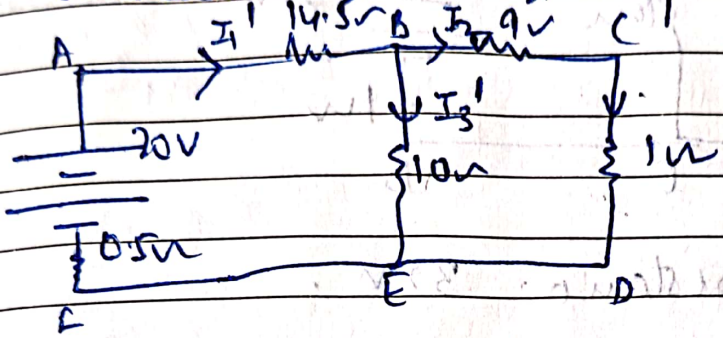 A I₁' 14.5Ω B I₂ 9Ω C
20V I₃' 10Ω 1Ω
0.5Ω
F E D